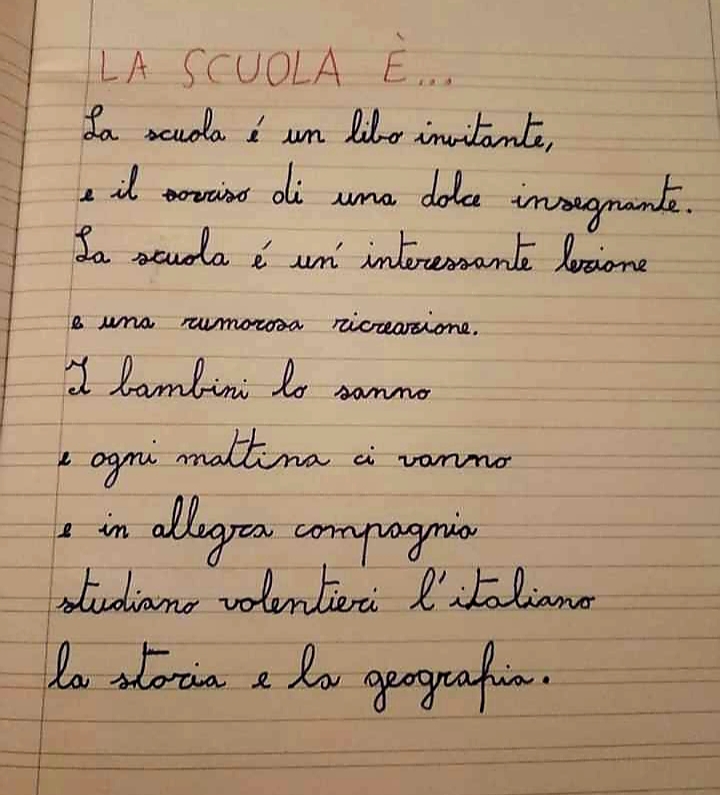 LA SCUOLA È...
La scuola é un libo invitante,
e il sorriso di una dolce insegnante.
La scuola é un' interessante lezione
e una rumorosa ricreazione.
I bambini lo sanno
e ogni mattina ci vanno
e in allegra compagnia
studiano volentieri l'italiano
la storia e la geografia.